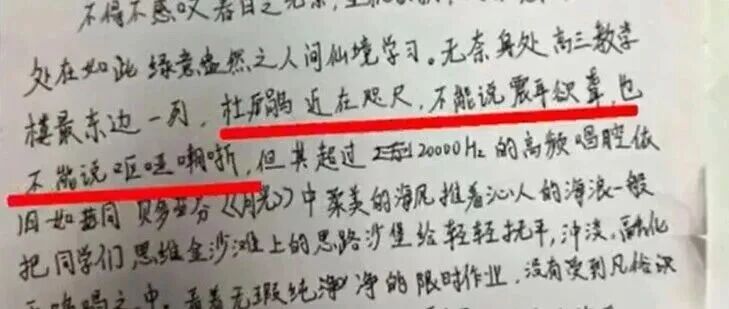 不得不感叹春日之
处在如此绿意盎然之人间仙境学习。无奈身处高三教学
楼最东边一列，杜鹃鹃近在咫尺，不能说震耳欲聋，也
不能说呕哑嘲哳，但其超过20000Hz的高频唱腔依
旧如同贝多芬《月光》中柔美的海风推着沁人的海浪一般
把同学们思维金沙滩上的思路沙堡给轻轻抚平，冲淡，融化
之中。看着无瑕纯净净的限时作业，没有受到凡俗